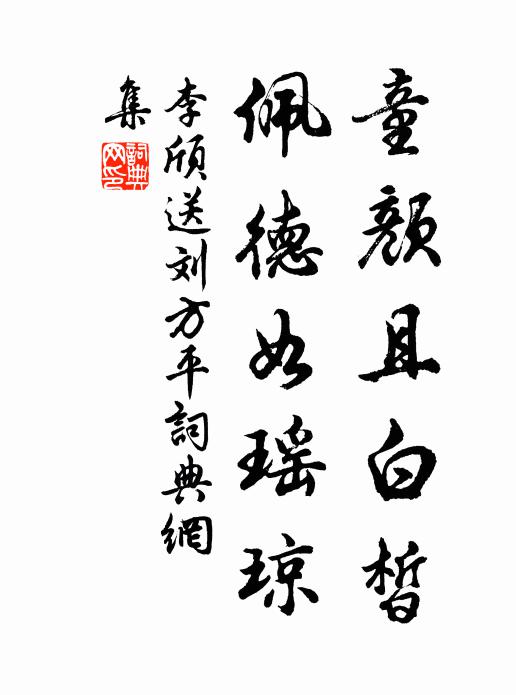 童颜且白皙
佩德如瑶琼
李颀送刘方平詞典網
集
詞典网印